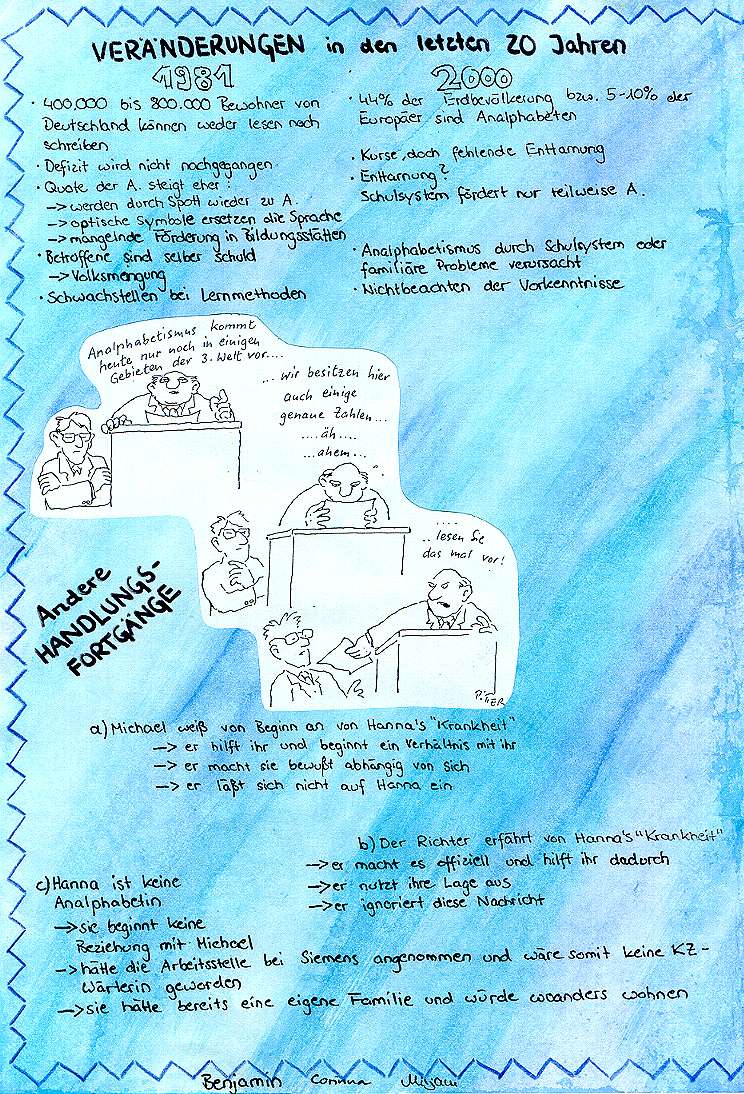 VERÄNDERUNGEN in den letzten 20 Jahren
1981
· 400.000 bis 800.000 Bewohner von
Deutschland können weder lesen noch
schreiben
· Defizit wird nicht nachgegangen
· Quote der A. steigt eher :
—> werden durch Spott wieder zu A.
—> optische Symbole ersetzen die Sprache
—> mangelnde Förderung in Bildungsstätten
· Betroffene sind selber schuld
—> Volksmengung
· Schwachstellen bei Lernmethoden
2000
· 44% der Erdbevölkerung bzw. 5-10% der
Europäer sind Analphabeten
· Kurse, doch fehlende Enttarnung
· Enttarnung?
Schulsystem fördert nur teilweise A.
· Analphabetismus durch Schulsystem oder
familiäre Probleme verursacht
· Nichtbeachten der Vorkenntnisse
Analphabetismus kommt
heute nur noch in einigen
Gebieten der 3. Welt vor....
... wir besitzen hier
auch einige
genaue Zahlen...
....äh....
...ahem...
....
..lesen Sie
das mal vor!
Andere
HANDLUNGS-
FORTGÄNGE
a) Michael weiß von Beginn an von Hanna's "Krankheit"
—> er hilft ihr und beginnt ein Verhältnis mit ihr
—> er macht sie bewußt abhängig von sich
—> er läßt sich nicht auf Hanna ein
b) Der Richter erfährt von Hanna's "Krankheit"
—> er macht es offiziell und hilft ihr dadurch
—> er nutzt ihre Lage aus
—> er ignoriert diese Nachricht
c) Hanna ist keine
Analphabetin
—> sie beginnt keine
Beziehung mit Michael
—> hätte die Arbeitsstelle bei Siemens angenommen und wäre somit keine KZ-
Wärterin geworden
—> sie hätte bereits eine eigene Familie und würde woanders wohnen
Benjamin Corinna